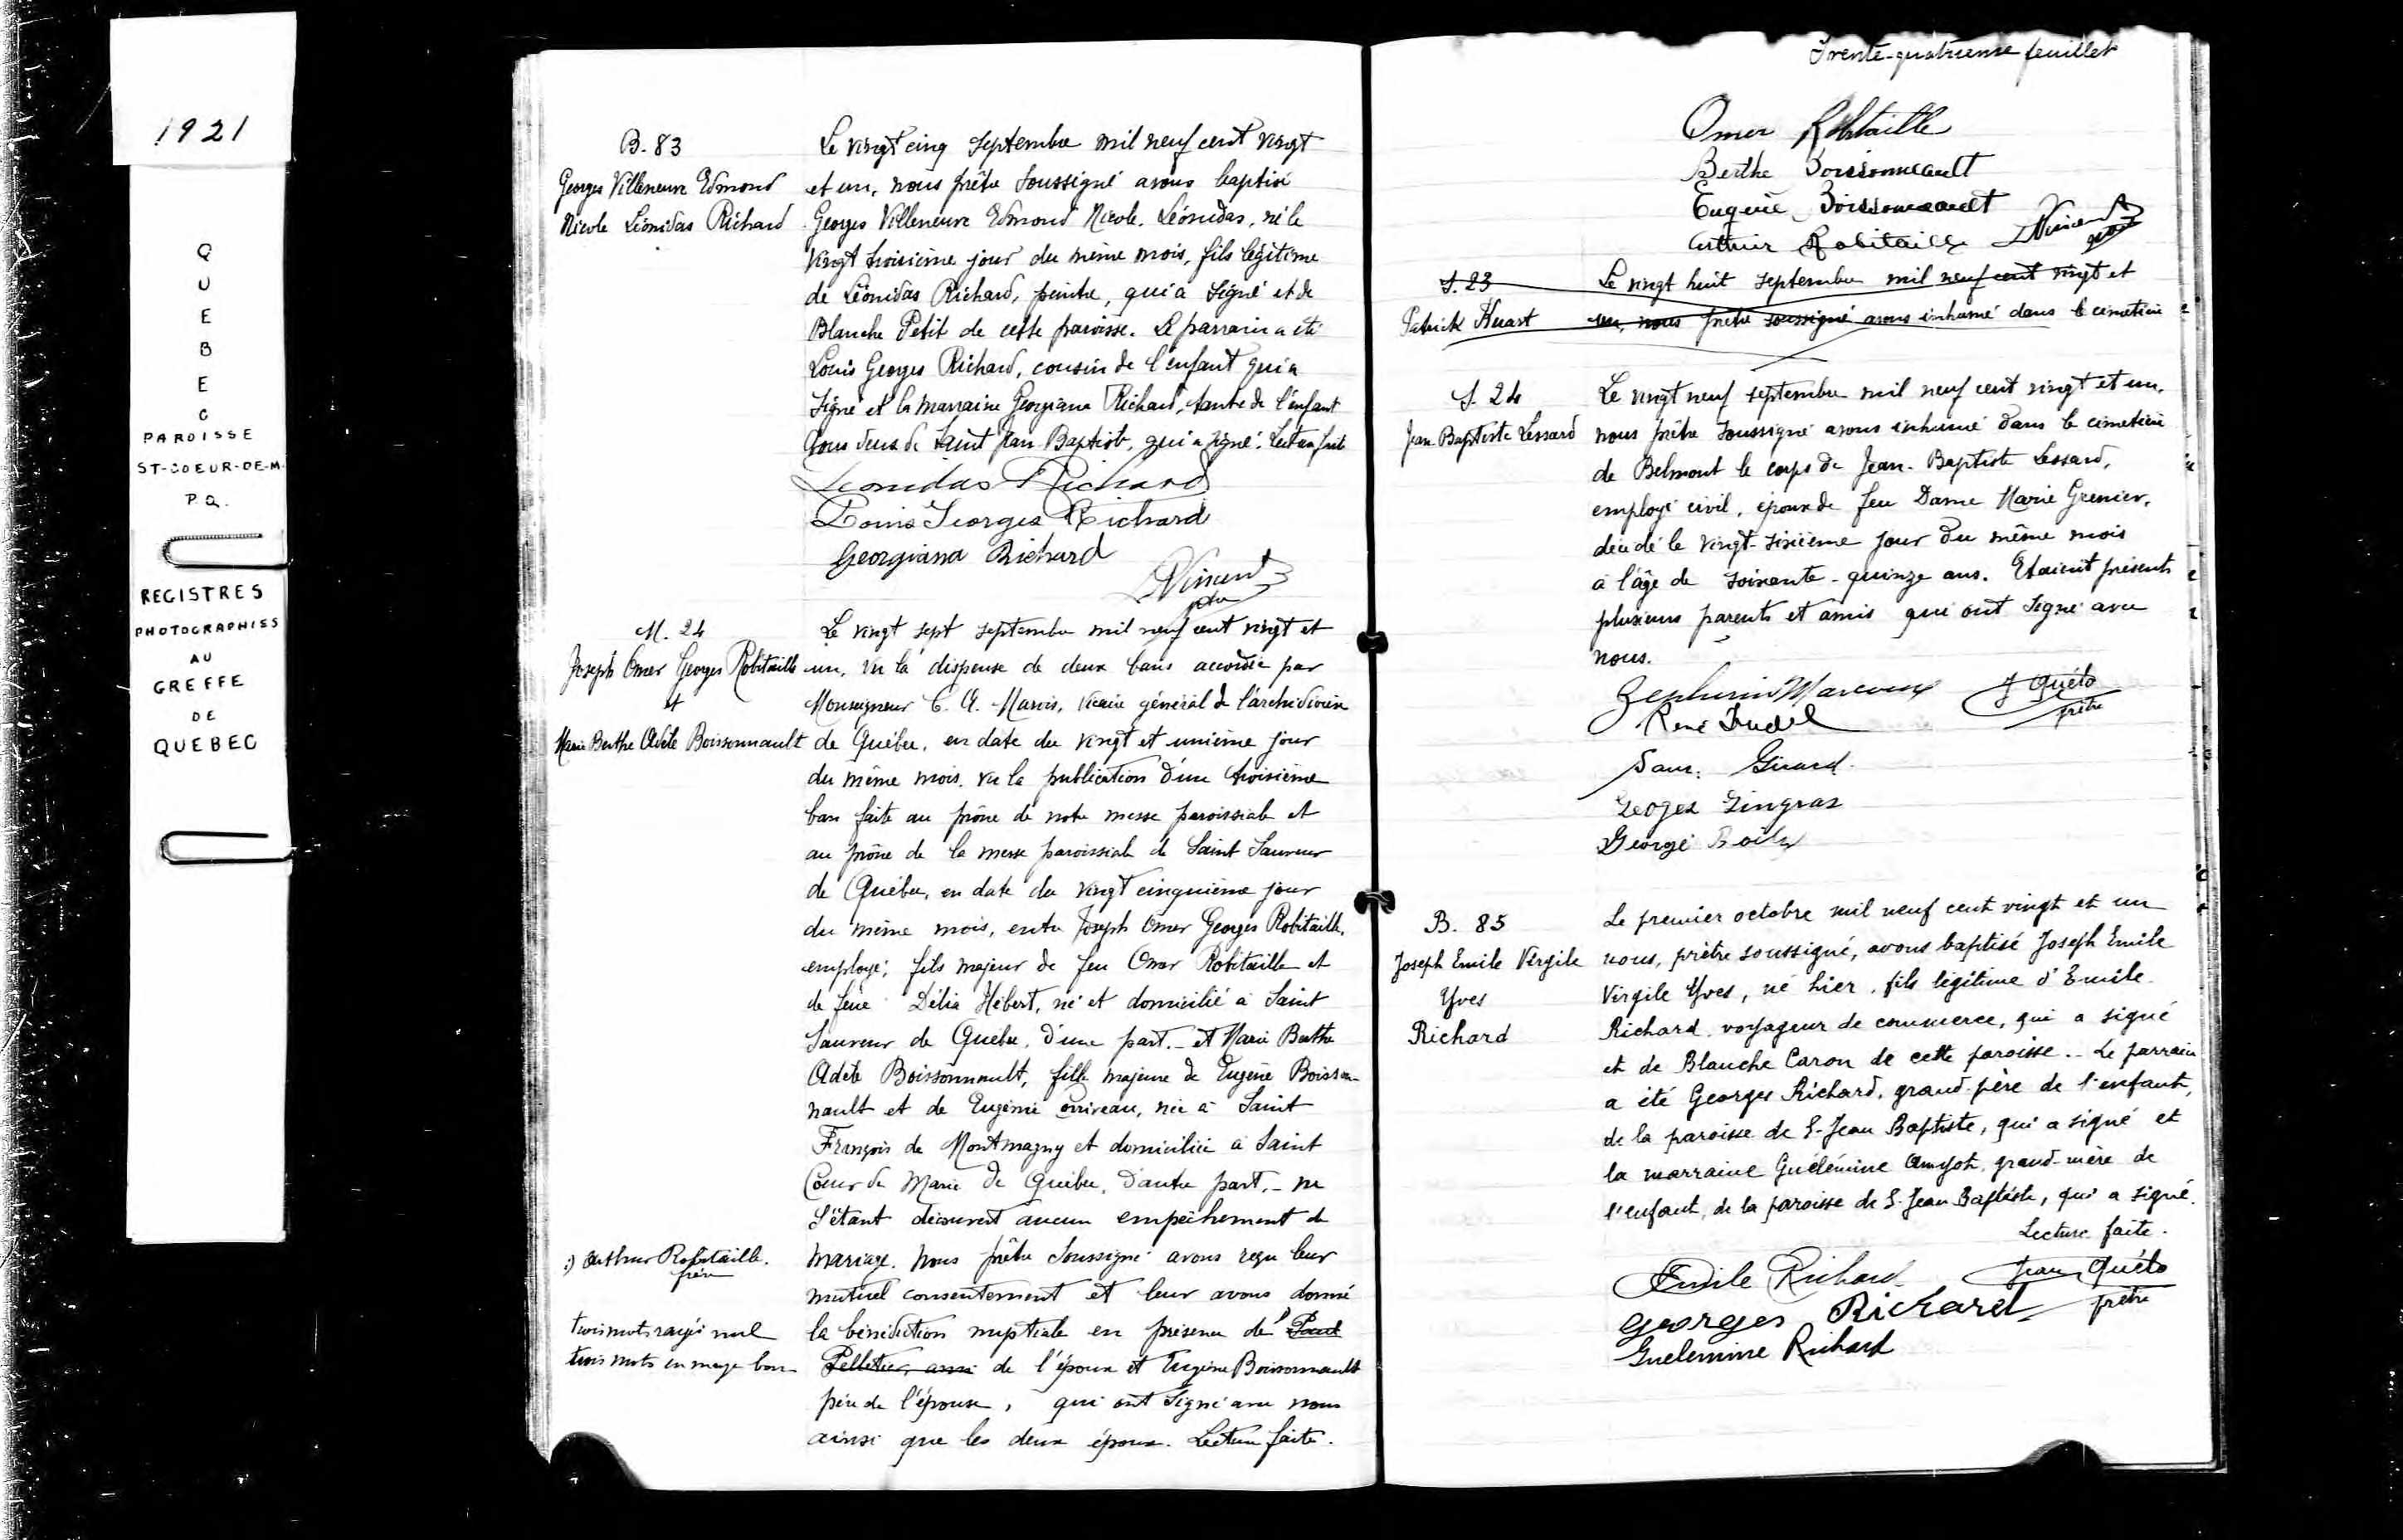 1921
QUEBEC
PAROISSE
ST-COEUR-DE-M.
P.Q.
REGISTRES
PHOTOGRAPHIES
AU
GREFFE
DE
QUEBEC
B. 83
Georges Villeneuve Edmond
Nicole Léonidas Richard
Le vingt cinq septembre mil neuf cent vingt
et un, nous prêtre soussigné avons baptisé
Georges Villeneuve Edmond Nicole Léonidas, né le
vingt troisième jour du même mois, fils légitime
de Léonidas Richard, peintre, qui a signé et de
Blanche Petit de cette paroisse. Le parrain a été
Louis Georges Richard, cousin de l'enfant qui a
signé et la marraine Georgiana Richard, tante de l'enfant
tous deux de Saint Jean-Baptiste, qui a signé. Lecture faite
Leonidas Richard
Louis Georges Richard
Georgiana Richard
Vincent
ptre
M. 24
Joseph Omer Georges Robitaille
et
Marie Berthe Adèle Boissonnault
Le vingt sept septembre mil neuf cent vingt et
un, vu la dispense de deux bans accordée par
Monseigneur C. A. Marois, vicaire général de l'archidiocèse
de Québec, en date du vingt et unième jour
du même mois, vu la publication d'un troisième
ban faite au prône de notre messe paroissiale et
au prône de la messe paroissiale de Saint Sauveur
de Québec, en date du vingt cinquième jour
du même mois, entre Joseph Omer Georges Robitaille,
employé, fils majeur de feu Omer Robitaille et
de feue Délia Hébert, né et domicilié à Saint
Sauveur de Québec, d'une part. - et Marie Berthe
Adèle Boissonnault, fille majeure de Eugène Boisson-
nault et de Eugénie Corriveau, née à Saint
François de Montmagny et domiciliée à Saint
Coeur de Marie de Québec, d'autre part. - ne
s'étant découvert aucun empêchement de
mariage, nous prêtre soussigné avons reçu leur
mutuel consentement et leur avons donné
la bénédiction nuptiale en présence de Paul
Pelletier, ami de l'époux et Eugène Boissonnault
père de l'épouse, qui ont signé avec nous
ainsi que les deux époux. Lecture faite.
Arthur Robitaille.
frère
trois mots rayés nul
trois mots en marge bon
Trente-quatrième feuillet
Omer Robitaille
Berthe Boissonneault
Eugène Boissonneault
Arthur Robitaille
Vincent
S. 23
Patrick
Le vingt huit septembre mil neuf cent vingt et
un, nous prêtre soussigné avons inhumé dans le cimetière
S. 24
Jean-Baptiste Lessard
Le vingt neuf septembre mil neuf cent vingt et un,
nous prêtre soussigné avons inhumé dans le cimetière
de Belmont le corps de Jean-Baptiste Lessard,
employé civil, époux de feu Dame Marie Grenier,
décédé le vingt-sixième jour du même mois
à l'âge de soixante-quinze ans. Etaient présents
plusieurs parents et amis qui ont signé avec
nous.
Zephirin Marcoux
J Quéto
prêtre
René Trudel
Girard
Geoges Gingras
George Boily
B. 85
Joseph Emile Virgile
Yves
Richard
Le premier octobre mil neuf cent vingt et un
nous, prêtre soussigné, avons baptisé Joseph Emile
Virgile Yves, né hier, fils légitime d'Emile
Richard, voyageur de commerce, qui a signé
et de Blanche Caron de cette paroisse. - Le parrain
a été Georges Richard, grand-père de l'enfant,
de la paroisse de S-Jean Baptiste, qui a signé et
la marraine Guélémine Amyot, grand-mère de
l'enfant, de la paroisse de S-Jean Baptiste, qui a signé.
Lecture faite.
Emile Richard
Jean Quéto
prêtre
Georges Richard
Guelemine Richard